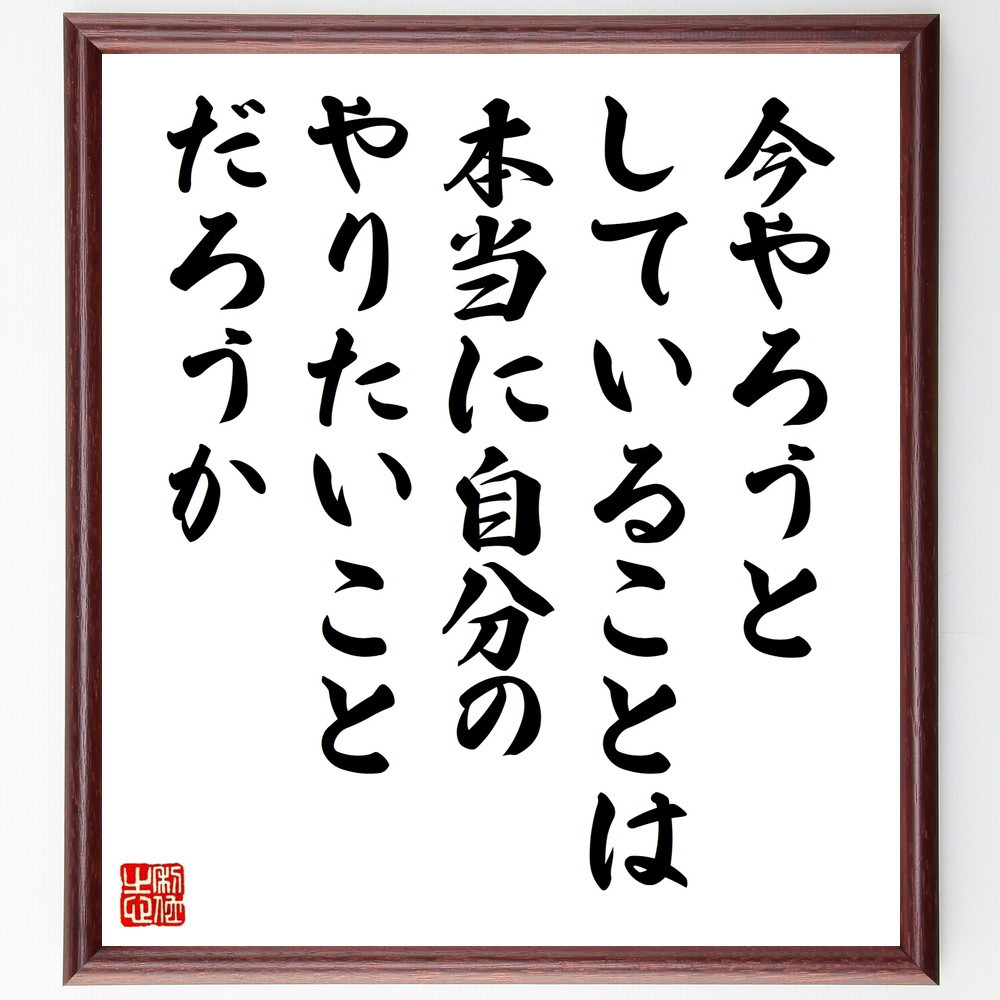 今やろうと
していることは
本当に自分の
やりたいこと
だろうか